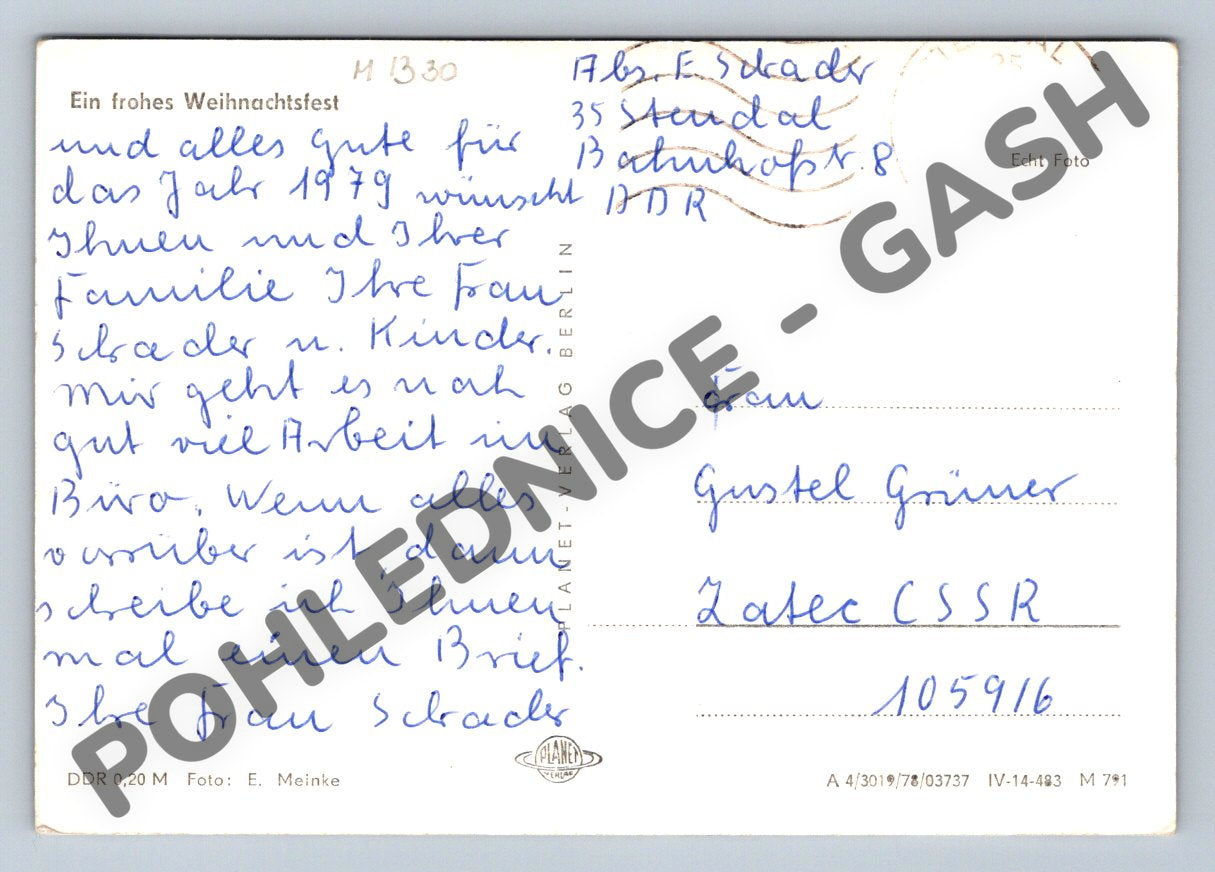 M 1330
Ein frohes Weihnachtsfest
und alles Gute für
das Jahr 1979 wünscht
Ihnen und Ihrer
Familie Ihre Frau
Schrader u. Kinder.
Mir geht es noch
gut viel Arbeit im
Büro. Wenn alles
vorrüber ist dann
schreibe ich Ihnen
mal einen Brief.
Ihre Frau Schrader
DDR 0,20 M Foto: E. Meinke
PLANET-VERLAG BERLIN
PLANET
VERLAG
Abs. E Schrader
35 Stendal
Bahnhofstr. 8
DDR
Echt Foto
Frau
Gustel Grüner
Zatec CSSR
1059/6
A 4/3019/78/03737 IV-14-483 M 791
POHLEDNICE - GASH